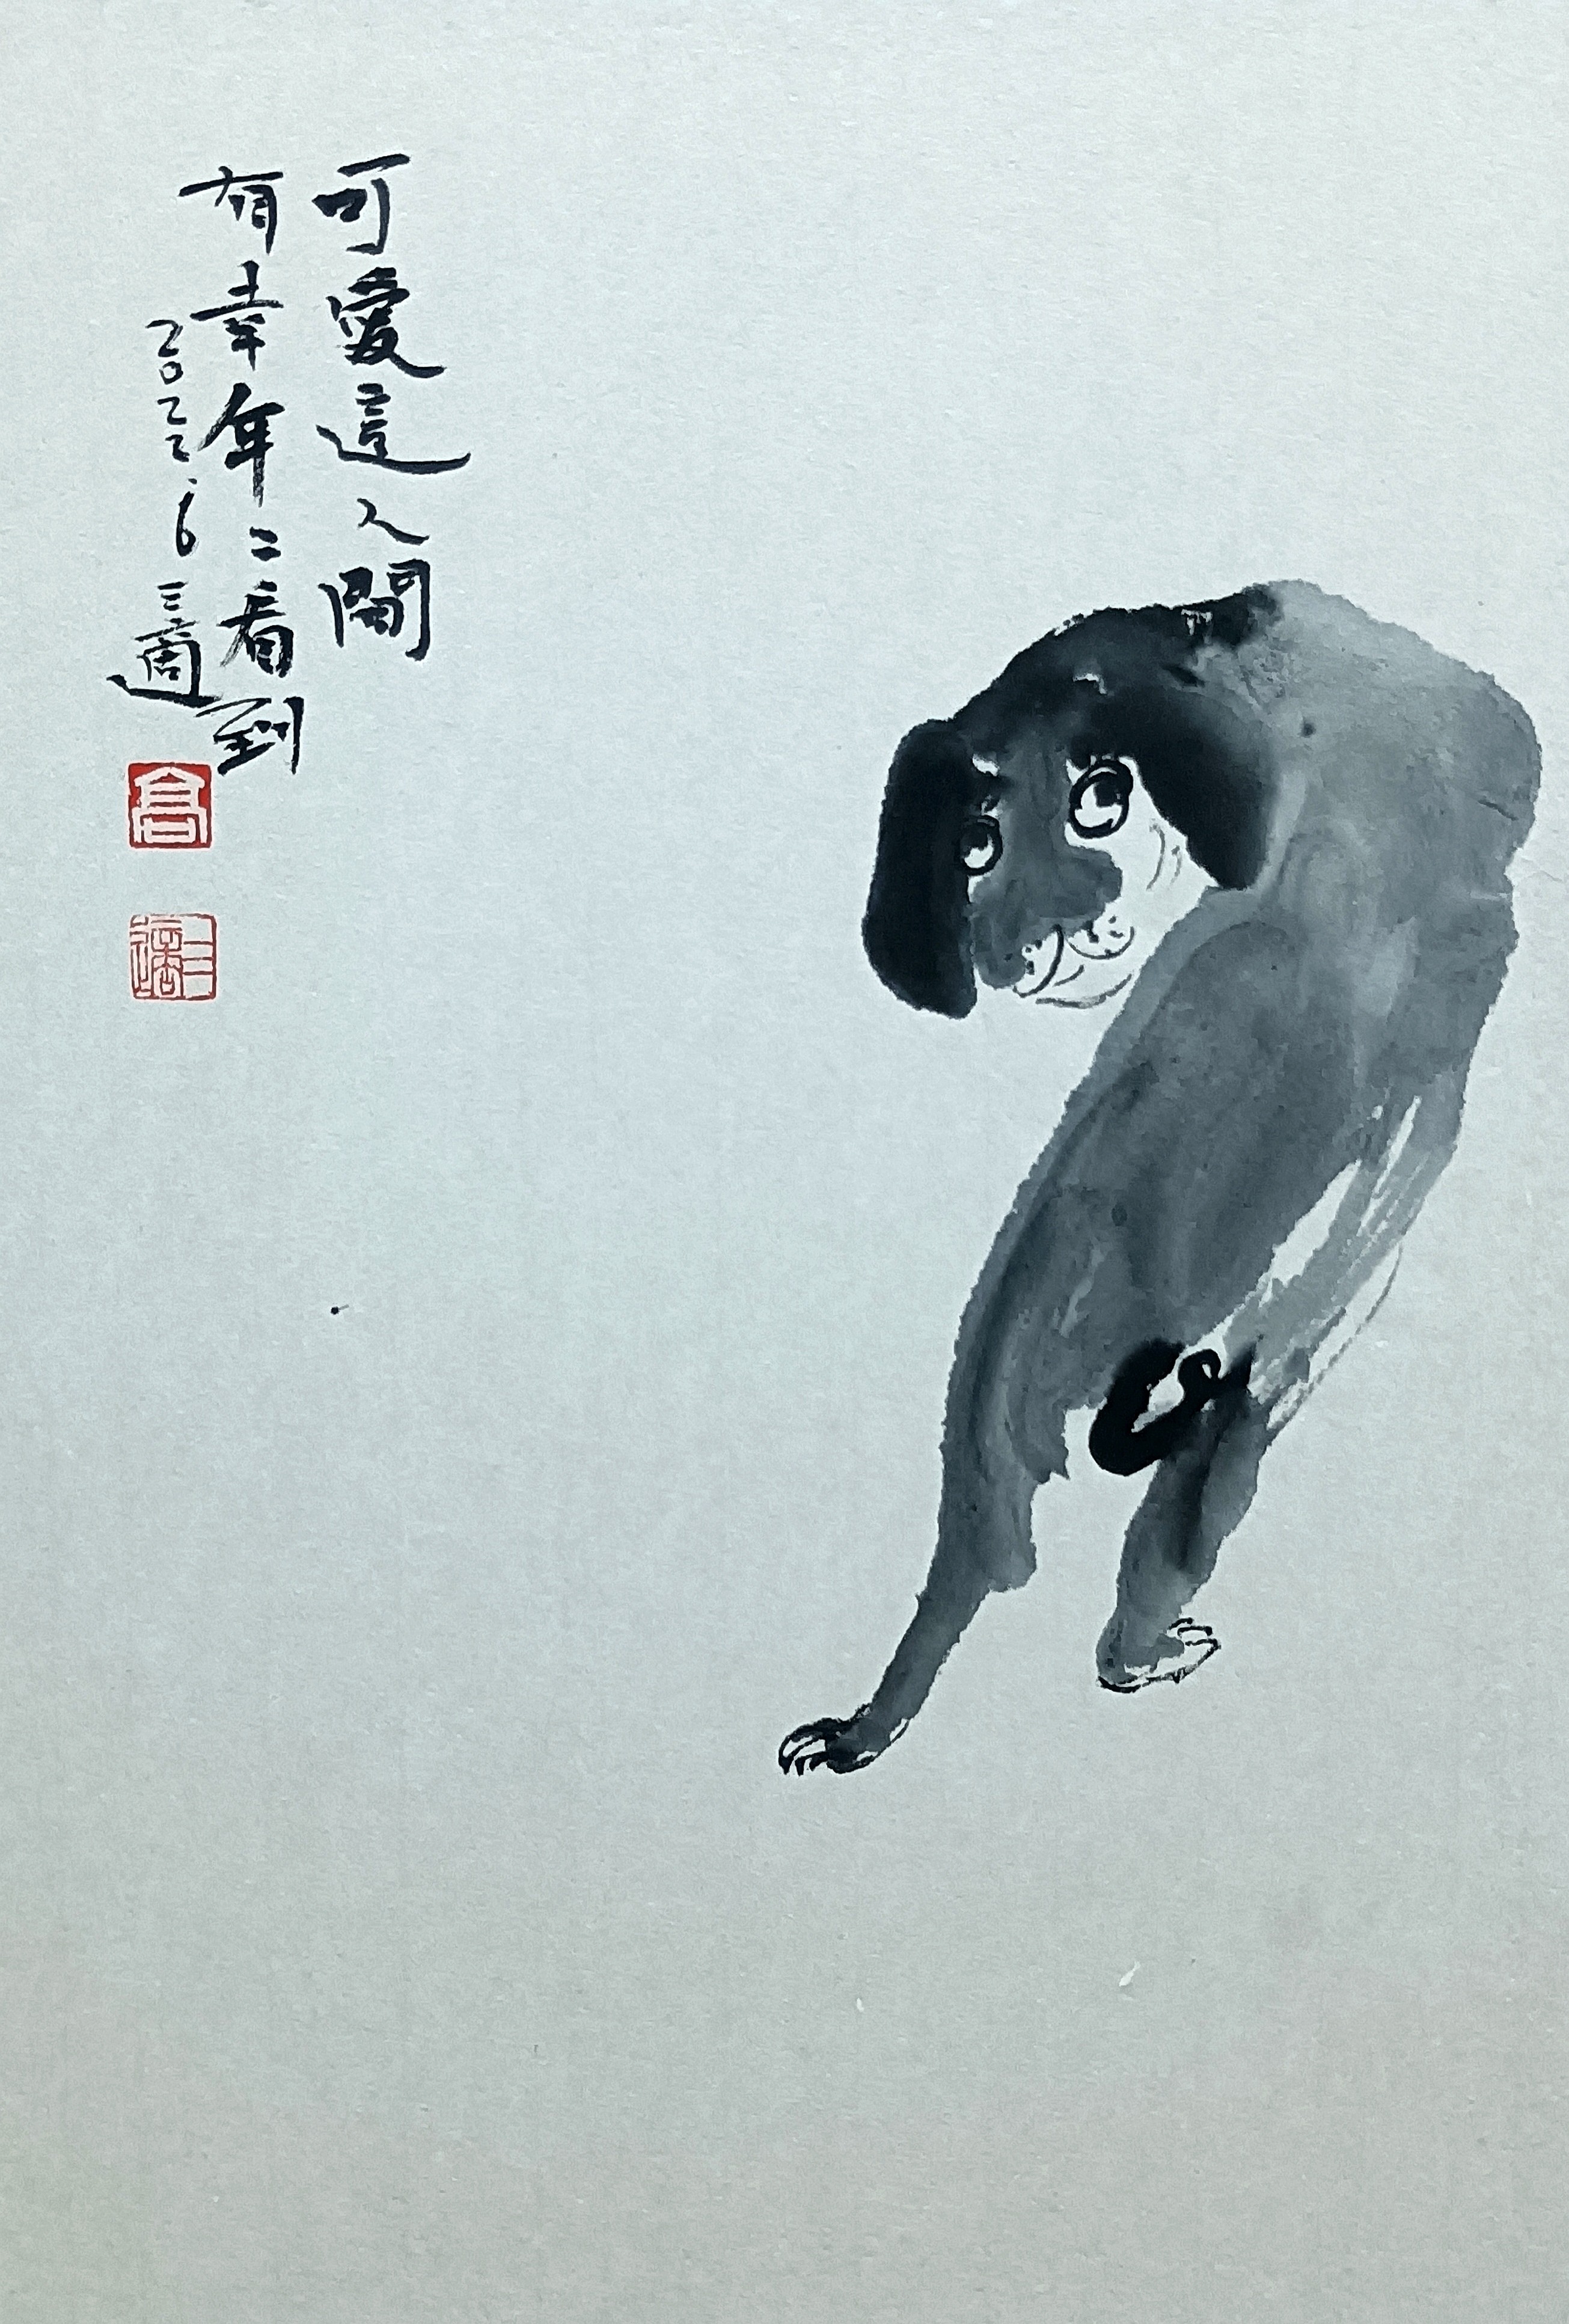 可愛這人間
有幸年二看到
2022.6 三適
高
三适